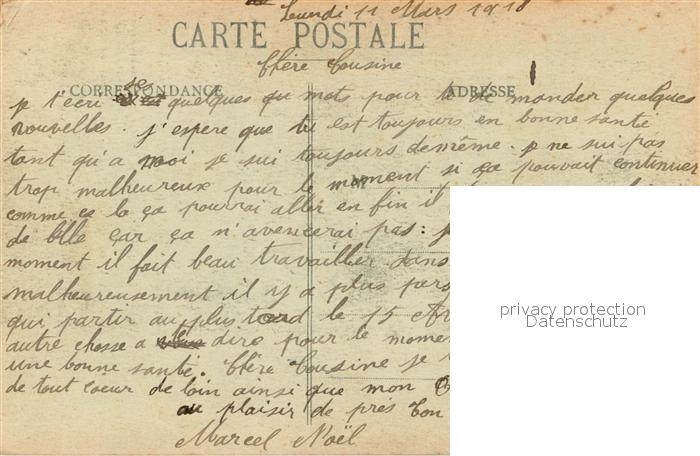 Leundi 11 Mars 1918
CARTE POSTALE
Chère Cousine
CORRESPONDANCE ADRESSE
je t'écri ses quelques qu mots pour te de mander quelques
nouvelles. j'espere que tu est toujours en bonne santé
tant qu'a moi je sui toujours demême. je ne sui pas
trop malheureux pour le moment si ça pouvait continuer
comme ça la ça pourrai aller en fin il
de car ça n'avencerai pas: j
moment il fait beau travailler dans
malheureusement il y a plus pers
qui partir au plus tard le 15 Av
autre chosse a dire pour le mome
une bonne santé. Chère Cousine je
de tout coeur de loin ainsi que mon
au plaisir de près Ton
Marcel Noël
privacy protection
Datenschutz